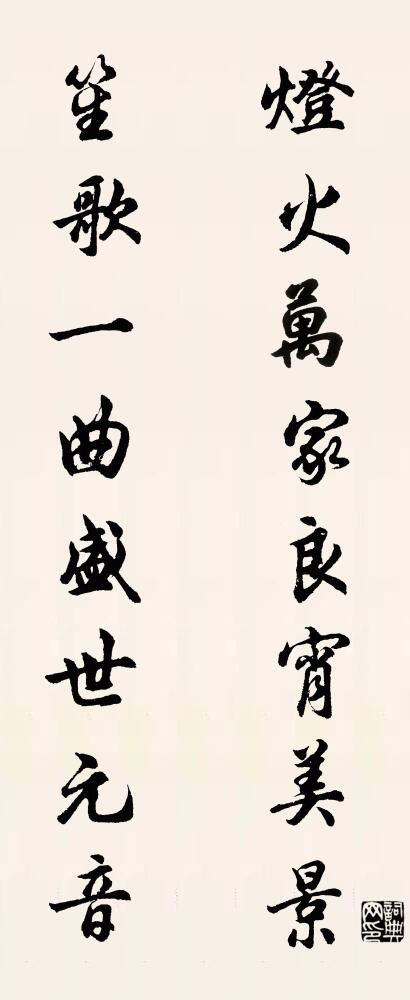 燈火萬家良宵美景
笙歌一曲盛世元音